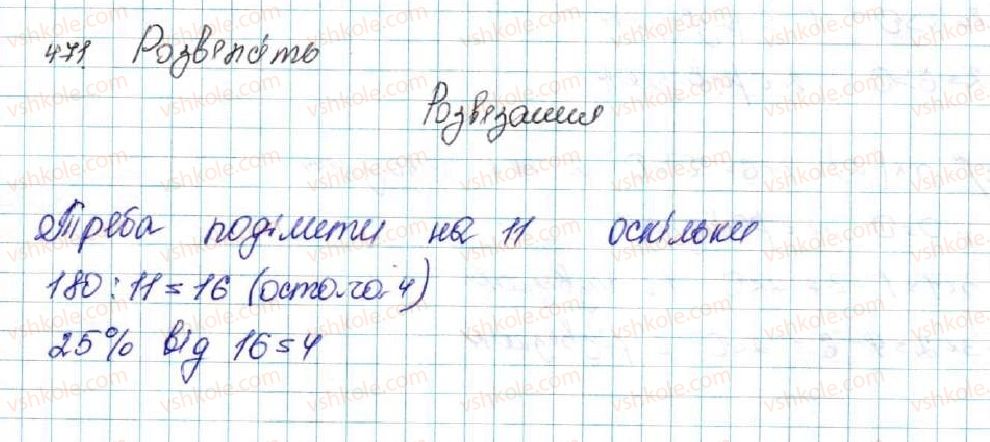 471. Розвяжіть
Розвязання
Треба поділити на 11 оскільки
180 : 11 = 16 (остача 4)
25% від 16 = 4